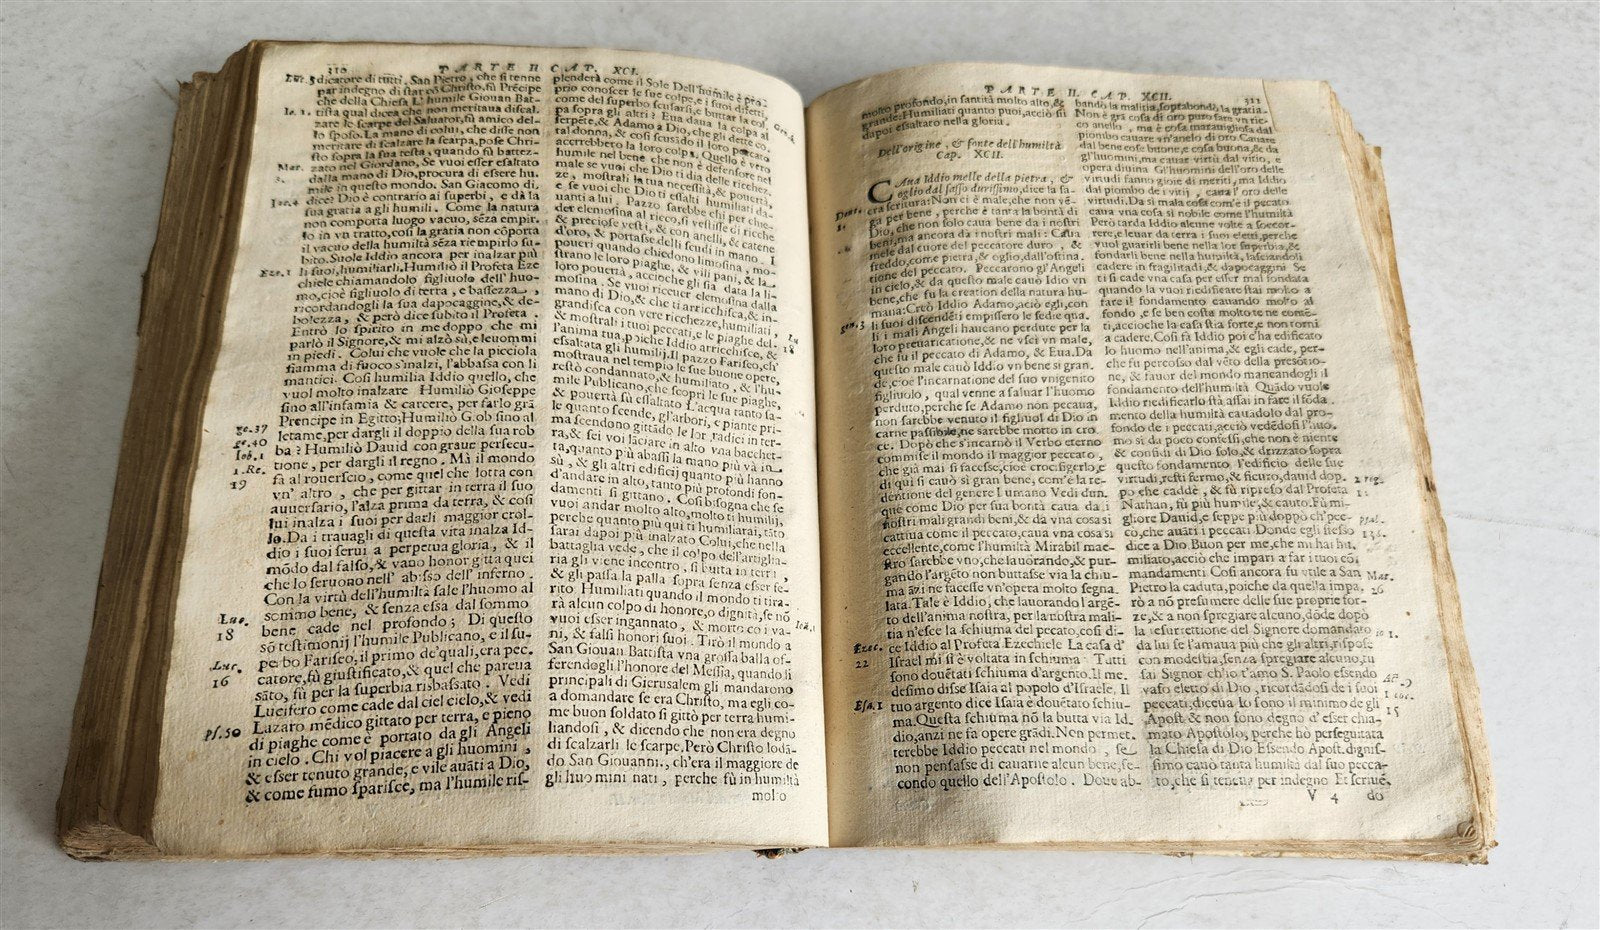 310 PARTE II CAP. XCI.
dicatore di tutti. San Pietro, che si tenne
par indegno di star cõ Christo, fù Prẽcipe
che della Chiesa L'humile Giouan Bat-
tista qual dicea che non meritaua discal-
zare le scarpe del Saluator, fù amico del-
lo sposo. La mano di colui, che disse non
meritare di scalzare la scarpa, pose Chri-
sto sopra la sua testa, quando fù battez-
zato nel Giordano. Se vuoi esser essaltato
dalla mano di Dio, procura di essere hu-
mile in questo mondo. San Giacomo di-
dice: Dio è contrario ai superbi, e dà la
sua gratia a gli humili. Come la natura
non comporta luogo vacuo, sẽza empir-
lo in vn tratto, cosi la gratia non cõporta
il vacuo della humiltà sẽza riempirlo su-
bito. Suole Iddio ancora per inalzar più
li suoi, humiliarli. Humiliò il Profeta Eze
chiele chiamandolo figliuolo dell'huo-
mo, cioè figliuolo di terra, e bassezza,
ricordandogli la sua dapocaggine, & de-
bolezza, & però dice subito il Profeta.
Entrò lo spirito in me doppo che mi
parlò il Signore, & mi alzò sù, e leuommi
in piedi. Colui che vuole che la picciola
fiamma di fuoco s'inalzi, l'abbassa con li
mantici. Cosi humilia Iddio quello, che
vuol molto inalzare Humiliò Gioseppe
sino all'infamia & carcere, per farlo grã
Prencipe in Egitto; Humiliò Giob sino al
letame, per dargli il doppio della sua rob
ba? Humiliò Dauid con graue persecu-
tione, per dargli il regno. Mà il mondo
fà al rouerscio, come quel che lotta con
vn'altro, che per gittar in terra il suo
auuersario, l'alza prima da terra, & cosi
lui inalza i suoi per darli maggior crol-
lo. Da i trauagli di questa vita inalza Id-
dio i suoi serui a perpetua gloria, & il
mõdo dal falso, & vano honor gitta quei
che lo seruono nell'abisso dell'inferno.
Con la virtù dell'humiltà sale l'huomo al
sommo bene, & senza essa dal sommo
bene cade nel profondo; Di questo
sõ testimonij l'humile Publicano, e il su-
perbo Fariseo, il primo de'quali, era pec-
catore, fù giustificato, & quel che pareua
sãto, fù per la superbia risbassato. Vedi
Lucifero come cade dal ciel cielo, & vedi
Lazaro mẽdico gittato per terra, e pieno
di piaghe come è portato da gli Angeli
in cielo. Chi vol piacere a gli huomini,
& esser tenuto grande, e vile auãti a Dio,
& come fumo sparisce, ma l'humile ris-
Luc. 5
Io. 1.
Mar.
Iac. 4
Eze. 1
ge. 37
ge. 40
Iob. 1
1. Re.
19
Luc.
18
Luc.
16
ps. 50
plenderà come il Sole Dell'humile è pro-
prio conoscer le sue colpe, e i suoi difetti,
come del superbo scusarsi, e buttar la col,
pa sopra gli altri? Eua daua la colpa al
serpẽte, & Adamo à Dio, che gli dette co,
tal donna, & cosi scusãdo il loro peccato
accrebbero la loro colpa. Quello è vero
humile nel bene che non è defensore nel
male se vuoi che Dio ti dia delle ricchez.
ze, mostrali la tua necessità, & pouertà,
e se vuoi che Dio ti essalti humiliati da-
uanti a lui. Pazzo sarebbe chi per chie-
der elemosina al ricco, si vestisse di ricche
& preciose vesti, & con anelli, & catene
d'oro, & portasse delli scudi in mano. I
poueri quando chiedono limosina, mo-
strano le loro piaghe, & vili pani, & la
loro pouertà, accioche gli sia data la li-
mosina. Se vuoi riceuer elemosina dalla
mano di Dio, & che ti arricchisca, & in-
grandisca con vere ricchezze, humiliati,
& mostrali i tuoi peccati, e le piaghe del-
l'anima tua, poiche Iddio arricchisce, &
essaltata gli humilij. Il pazzo Fariseo, ch'
mostraua nel tempio le sue buone opere,
restò condannato, & humiliato, & l'hu-
mile Publicano, che scoprì le sue piaghe,
& pouertà fù essaltato L'acqua tanto sa-
le quanto scende, gl'arbori, e piante pri-
ma scendono gittãdo le lor radici in ter-
ra, & sei voi làciare in alto vna bacchet-
ta, quanto più abassi la mano più và in
sù, & gli altri edificij quanto più hanno
d'andare in alto, tanto più profondi fon-
damenti si gittano. Cosi bisogna che se
vuoi andar molto alto, molto ti humilij,
perche quanto più qui ti humiliarai, tãto
sarai dapoi più inalzato Colui, che nella
battaglia vede, che il colpo dell'artiglia-
ria gli viene incontro, si butta in terra,
& gli passa la palla sopra senza esser fe-
rito. Humiliati quando il mondo ti tira-
rà alcun colpo di honore, o dignità, se nõ
vuoi esser ingannato, & morto co i va-
ni, & falsi honori suoi. Tirò il mondo a
San Giouan Battista vna grossa balla of-
ferendogli l'honore del Messia, quando li
principali di Gierusalem gli mandarono
a domandare se era Christo, ma egli co-
me buon soldato si gittò per terra humi-
liandosi, & dicendo che non era degno
di scalzarli le scarpe. Però Christo lodã-
do San Giouanni, ch'era il maggiore de
gli huomini nati, perche fù in humiltà
molto
Gen. 3.
Lu
18
Ioã. 1
PARTE II. CAP. XCII. 311
molto profondo, in santità molto alto, &
grande: Humiliati quanto puoi, acciò sii
dapoi essaltato nella gloria.
Dell'origine, & fonte dell'humiltà
Cap. XCII.
CAua Iddio melle della pietra, &
oglio dal sasso durissimo, dice la sa-
cra scritura: Non ci è male, che non vẽ-
ga per bene, perche è tanta la bontà di
Dio, che non solo caua bene da i nostri
beni, ma ancora da i nostri mali: Caua
mele dal cuore del peccatore duro, &
freddo, come pietra, & oglio, dall'ostina.
tione del peccato. Peccarono gl'Angeli
in cielo, & da questo male cauò Idio vn
bene, che fu la creation della natura hu-
mana: Creò Iddio Adamo, aciò egli, con
li suoi discendẽti empissero le sedie qua.
li i mali Angeli haueano perdute per la
loro preuaricatione, & ne vsci vn male,
che fu il peccato di Adamo, & Eua. Da
questo male cauò Iddio vn bene si gran.
de, cioè l'incarnatione del suo vnigenito
figliuolo, qual venne a saluar l'huomo
perduto, perche se Adamo non pecaua,
non sarebbe venuto il figliuol di Dio in
carne passibile, ne sarebbe morto in cro.
ce. Dopò che s'incarnò il Verbo eterno
commise il mondo il maggior peccato,
che già mai si facesse, cioè crocifigerlo, e
di qui si cauò sì gran bene, com'è la re-
dentione del genere Humano Vedi dun.
que come Dio per sua bontà caua da i
nostri mali grandi beni, & da vna cosa si
cattiua come il peccato, caua vna cosa si
eccellente, come l'humiltà Mirabil mae-
stro sarebbe vno, che lauorãdo, & pur-
gando l'argẽto non buttasse via la schiu-
ma ãzi ne facesse vn'opera molto segna.
lata. Tale è Iddio, che lauorando l'argẽ-
to dell'anima nostra, per la nostra mali-
tia n'esce la schiuma del pecato, cosi di-
ce Iddio al Profeta Ezechiele La casa d'
Israel mi si è voltata in schiuma Tutti
sono douẽtati schiuma d'argento. Il me.
desimo disse Isaia al popolo d'Israele. Il
tuo argento dice Isaia è douẽtato schiu-
ma. Questa schiuma nõ la butta via Id.
dio, anzi ne fa opere grãdi. Non permet.
terebbe Iddio peccati nel mondo, se
non pensasse di cauarne alcun bene, se-
condo quello dell'Apostolo. Doue ab-
Deut.
gen. 3
Ezec.
22
Esa. 1
bando la malitia, soprabondò, la gratia.
Non è grã cosa di oro puro fare vn ric-
co anello, ma è cosa marauigliosa dal
piombo cauare vn'anelo di oro Cauare
dal bene cose buone, e cosa buona, & da
gl'huomini, ma cauar virtù dal vitio, e
opera diuina Gl'huomini dell'oro delle
virtudi fanno gioie di meriti, ma Iddio
dal piombo de i vitij, caua l'oro delle
virtudi. Da si mala cosa com'è il pecato
caua vna cosa si nobile come l'humiltà
Però tarda Iddio alcune volte a soccor-
rere, e leuar da terra i suoi eletti, perche
vuol guarirli bene nella lor superbia, &
fondarli bene nella humiltà, lasciandoli
cadere in fragilitadi, & dapocaggini Se
ti si cade vna casa per esser mal fondata
quando la vuoi riedificare stai molto a
fare il fondamento cauando molto al
fondo, e se ben costa molto te ne contẽ-
ti, accioche la casa stia forte, e non torni
a cadere. Cosi fà Iddio poi c'ha edificato
lo huomo nell'anima, & egli cade, per-
che fu percosso dal vẽto della presõtio-
ne, & fauor del mondo mancandogli il
fondamento dell'humiltà Quãdo vuole
Iddio riedificarlo stà assai in fare il fõda.
mento della humiltà cauãdolo dal pro-
fondo de i peccati, acciò vedẽdosi l'huo.
mo si da poco confessi, che non è niente
& confidi di Dio solo, & drizzato sopra
questo fondamento l'edificio delle sue
virtudi, resti fermo, & sicuro, dauid dop.
po che cadde, & fù ripreso dal Profeta
Nathan, fù più humile, & cauto. Fù mi-
gliore Dauid, e seppe più doppo ch'pec-
cò, che auãti i peccati Donde egli stesso
dice a Dio Buon per me, che mi hai hu.
miliato, acciò che impari a far i tuoi cõ.
mandamenti Cosi ancora fu vtile a San
Pietro la caduta, poiche da quella impa,
rò a nõ presumere delle sue proprie for-
ze, & a non spregiare alcuno, dõde dopò
la resurrettione del Signore domandato
da lui se l'amaua più che gli altri, rispose
con modestia, senza spregiare alcuno, tu
sai Signor ch'io t'amo S. Paolo essendo
vaso eletto di Dio, ricordãdosi de i suoi
peccati, diceua Io sono il minimo de gli
Apost & non sono degno d'esser chia-
mato Apostolo, perche hò perseguitata
la Chiesa di Dio Essendo Apost. digniss-
simo cauò tanta humiltà dal suo pecca-
to, che si teneua per indegno Et seruẽ.
2 reg.
psal.
Mar.
26
io 1.
1 cor.
15
V 4 do